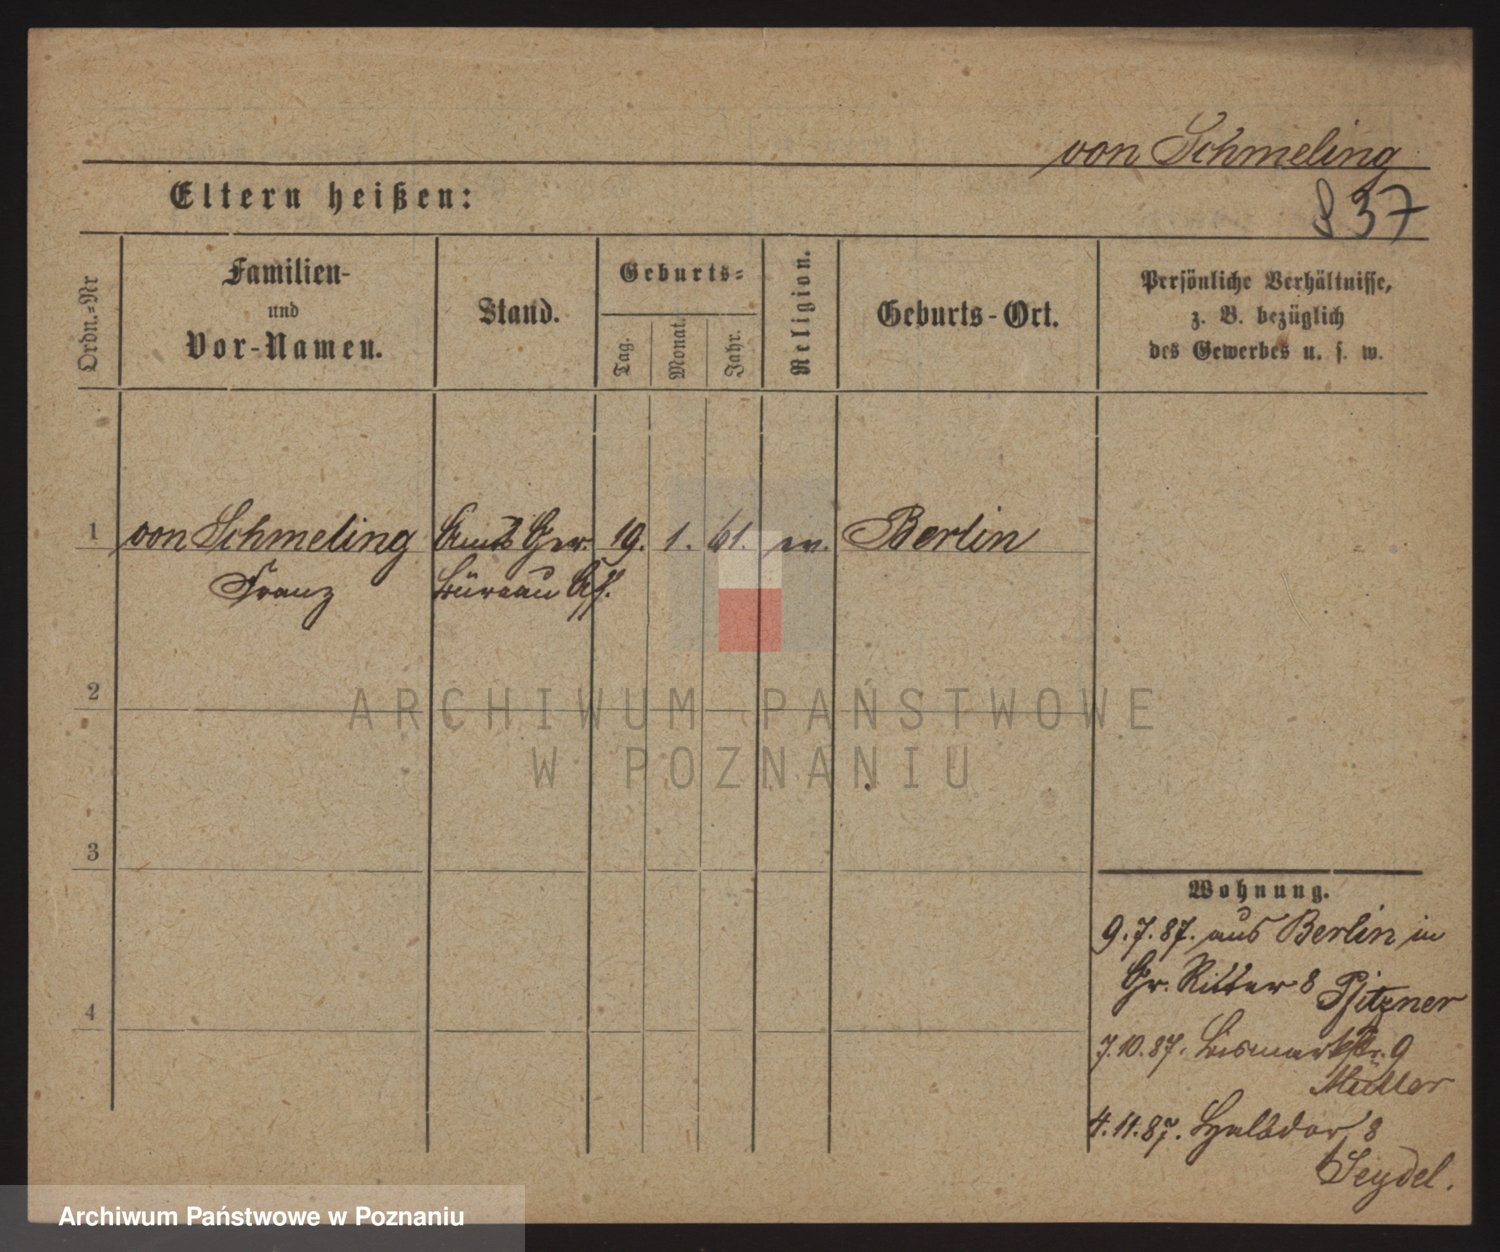 von Schmeling
Eltern heißen:
837
Ordn.-Nr
Familien-
und
Vor-Namen.
Stand.
Geburts-
Tag.
Monat.
Jahr.
Religion.
Geburts-Ort.
Persönliche Verhältnisse,
z. B. bezüglich
des Gewerbes u. s. w.
1 von Schmeling Amts Ger. 19. 1. 61. ev. Berlin
Franz Büreau Ass.
2
3
4
ARCHIWUM PAŃSTWOWE
W POZNANIU
Wohnung.
9.7.87. aus Berlin in
Gr. Ritter 8 Pfitzner
7.10.87. Bismarkstr. 9
Müller
4.11.87. Halbdor 8
Seydel.
Archiwum Państwowe w Poznaniu